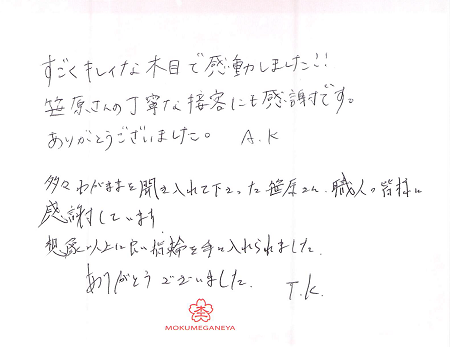 すごくキレイな木目で感動しました!!
笹原さんの丁寧な接客にも感謝です。
ありがとうございました。 A.K
多々わがままを聞き入れて下さった笹原さん、職人の皆様に
感謝しています
想像以上に良い指輪を手に入れられました.
ありがとうございました. T.K.
MOKUMEGANEYA